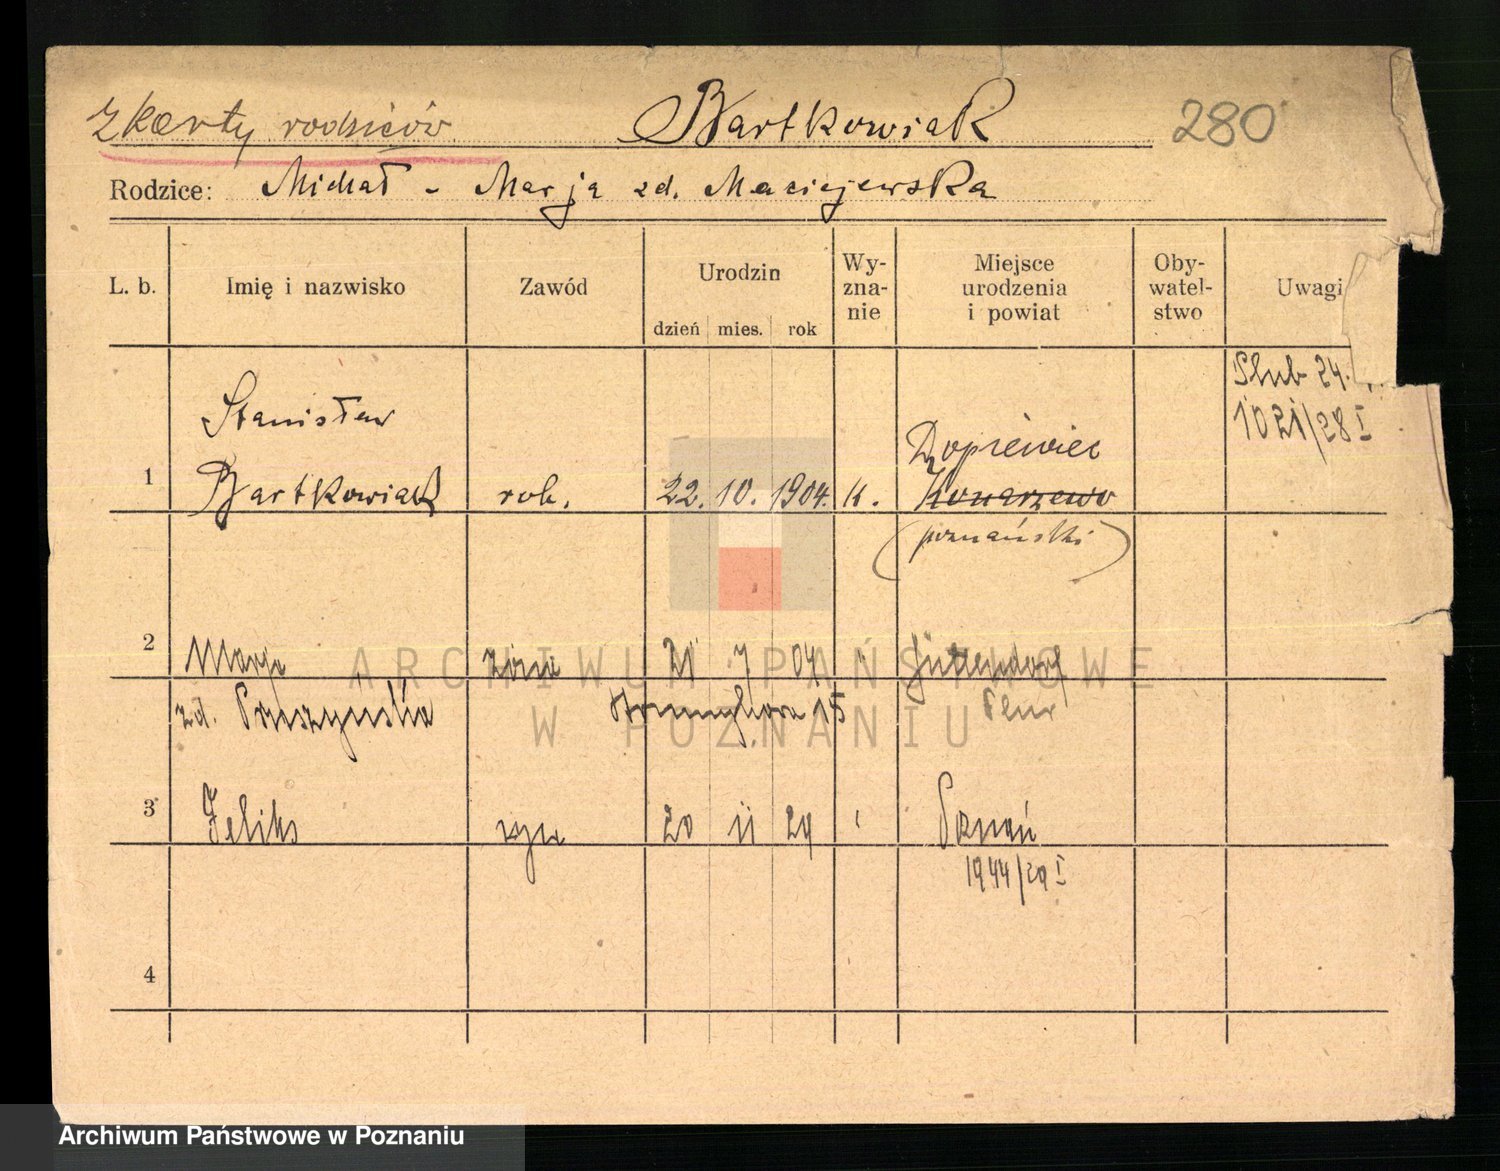 z karty rodziców Bartkowiak 280
Rodzice: Michał - Marja zd. Maciejewska
L. b. Imię i nazwisko Zawód Urodzin Wy-zna-nie Miejsce urodzenia i powiat Oby-watel-stwo Uwagi
dzień mies. rok
Ślub 24.
Stanisław 1021/28 I
Dopiewiec
1 Bartkowiak rob. 22. 10. 1904. k. Konarzewo
(poznański)
2 Marja żona 21 7 04 "
zd. 15
3 Feliks syn 20 11 29 " Poznań
1944/29 I
4
ARCHIWUM PAŃSTWOWE
W POZNANIU
Archiwum Państwowe w Poznaniu